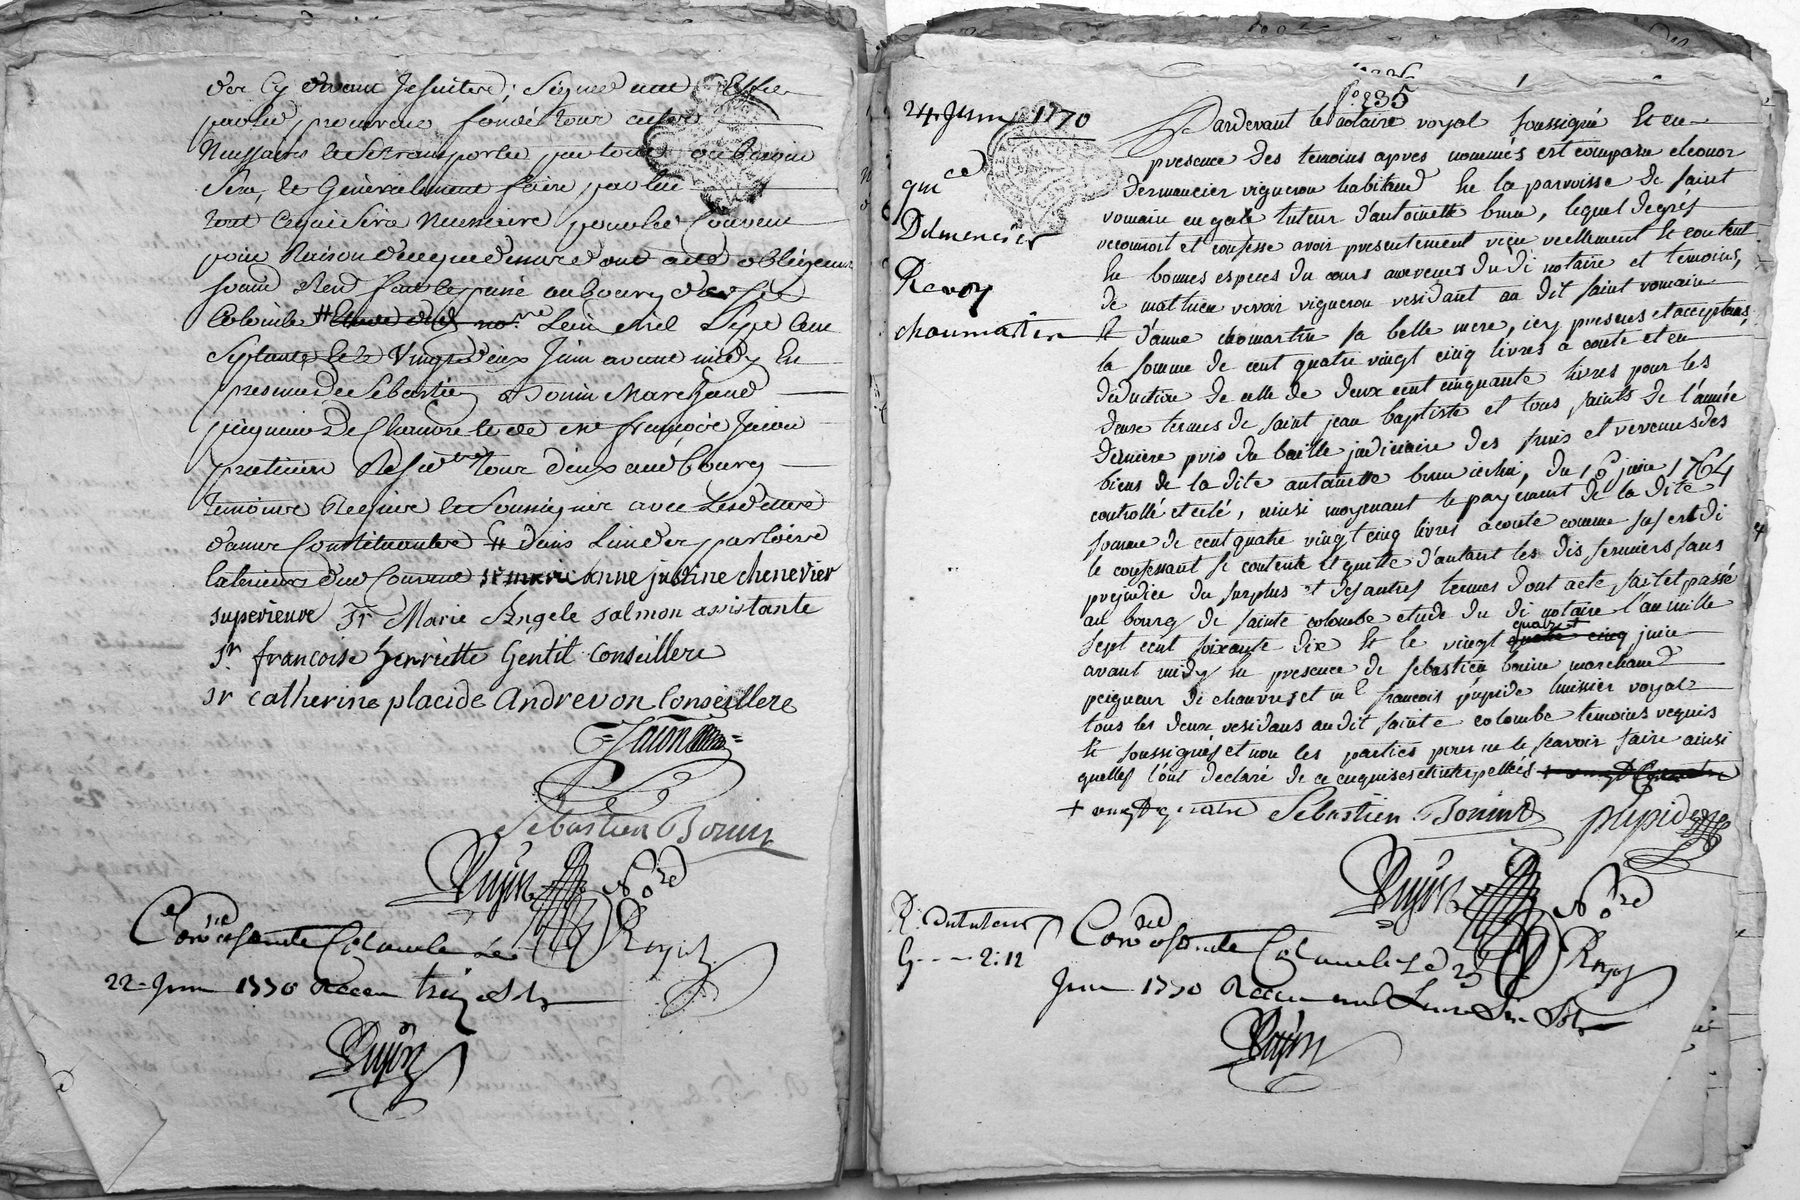 der Cy devant Jesuitere; Signer
par tout ou besoin
Sera, et Généralement faire pour
tout ce qui sera Necessaire pour led Couvent
pour Raison de ce que dessus dont acte obligeant
soumd Rend fait et passé au bourg de Ste
Colombe # Lan mil Sept Cen
Septante Et le Vingt deux Juin avant midy En
presence de Sebastien Bonin Marchand
peigneur De Chanvre et de me françois Jaion
praticien Resid tour deux aud bourg
temoins Requis et Soussignés avec Lesdittes
dames Constituantes # dans Lun des parloirs
Exterieurs dud Couvent sr marie anne justine chenevier
superieure Sr Marie Angele salmon assistante
Sr francoise henriette Gentil Conseillere
sr catherine placide Andrevon Conseillere
=Jaion=
Sebastien Bonin
Puyin No.re Royal
Con.lé a Sainte Colombe Le
22 Juin 1770 Receu treize Sols
Puyin
f.o 235
24 Juin 1770
qui.ce
Delmencier
Revoy
chaumartin
Pardevant le notaire royal soussigné Et en
presence des temoins apres nommés est comparu eleonor
dermencier vigneron habitant De la parroisse de saint
romain en galé tuteur d'antoinette brun, lequel de gres
reconnoit et confesse avoir presentement reçu reellement Et content
En bonnes especes du cours aux veues du dit notaire et temoins,
de mathieu revoir vigneron residant au dit saint romain
Et d'anne chomartin sa belle mere, icy presens et acceptans,
la somme de cent quatre vingt cinq livres à conte et en
déduction de celle de deux cent cinquante livres pour les
deux termes de saint jean baptiste et tous saints de l'année
derniere prix du baille judiciaire des fruits et revenus des
biens de la dite antoinette brun du 18 juin 1764
controllé et celé, ainsi moyenant le payement de la dite
somme de cent quatre vingt cinq livres à conte comme sus est di
le confessant se contente et quitte d'autant les dis fermiers sans
prejudice du surplus et des autres termes dont acte, fait et passé
au bourg de sainte colombe etude du di notaire l'an mille
sept cent soixante dix Et le vingt quatre cinq juin
avant midy en presence de sebastien bonin marchand
peigneur de chanvre et me françois pupide huissier royal
tous les deux residans au dit sainte colombe temoins requis
Et soussignés et non les parties pour ne le scavoir faire ainsi
quelles l'ont declaré de ce enquises et interpellées
+ vingt quatre Sebastien Bonin pupide
Puyin No.re Royal
R. du tuteur
G - - - 2:12
Con.lé a Ste Colombe Le 25
Juin 1770 Receu Sols
Puyin